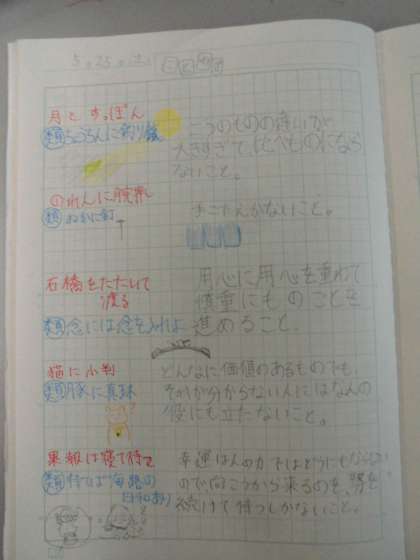 5.23.(土) ことわざ
月とすっぽん
類 ちょうちんに釣り鐘
一つのものの違いが
大きすぎて、比べものになら
ないこと。
のれんに腕押し
類 ぬかに釘
手ごたえがないこと。
石橋をたたいて
渡る
類 念には念を入れよ
用心に用心を重ねて
慎重にものごとを
進めること。
猫に小判
類 豚に真珠
どんなに価値のあるものでも、
それが分からない人にはなんの
役にも立たないこと。
果報は寝て待て
類 待てば海路の
日和あり
幸運は人の力ではどうにもならない
ので向こうから来るのを、
続けて待つしかないこと。